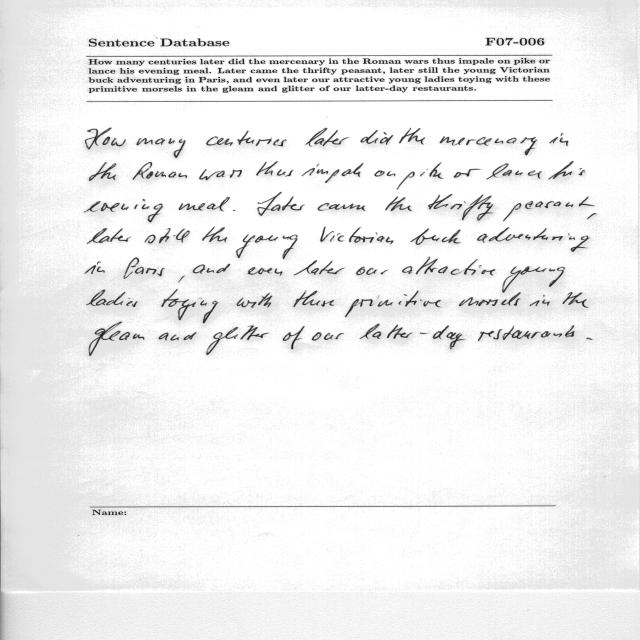 Sentence Database F07-006
How many centuries later did the mercenary in the Roman wars thus impale on pike or
lance his evening meal. Later came the thrifty peasant, later still the young Victorian
buck adventuring in Paris, and even later our attractive young ladies toying with these
primitive morsels in the gleam and glitter of our latter-day restaurants.
How many centuries later did the mercenary in
the Roman wars thus impale on pike or lance his
evening meal. Later came the thrifty peasant,
later still the young Victorian buck adventuring
in Paris, and even later our attractive young
ladies toying with these primitive morsels in the
gleam and glitter of our latter-day restaurants.
Name: